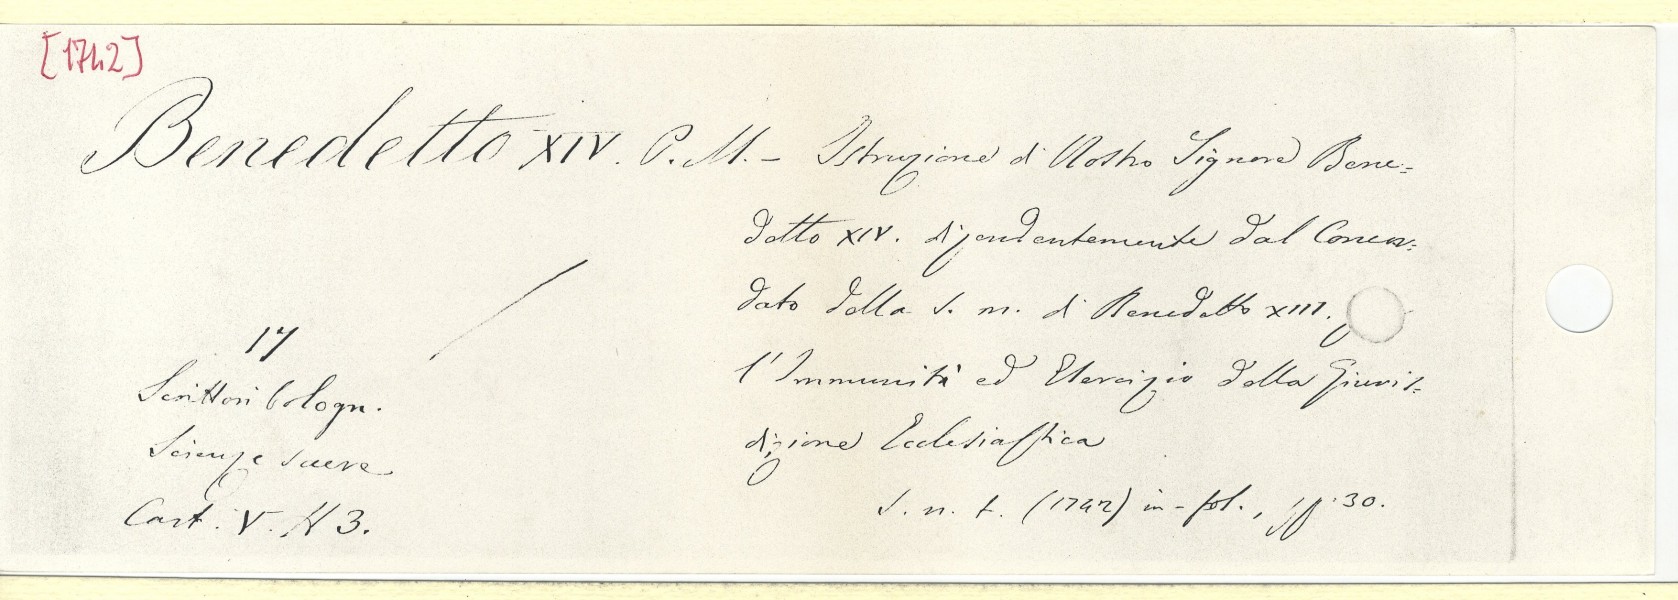 [1742]
Benedetto XIV. P. M. – Istruzione di Nostro Signore Bene=
detto XIV. dipendentemente dal Concor=
dato della s. m. di Benedetto XIII.
l'Immunità ed Esercizio della Giuris=
dizione Ecclesiastica
s. n. t. (1742) in-fol., pp. 30.
17
Scrittori bologn.
Scienze sacre
Cart. V. H 3.